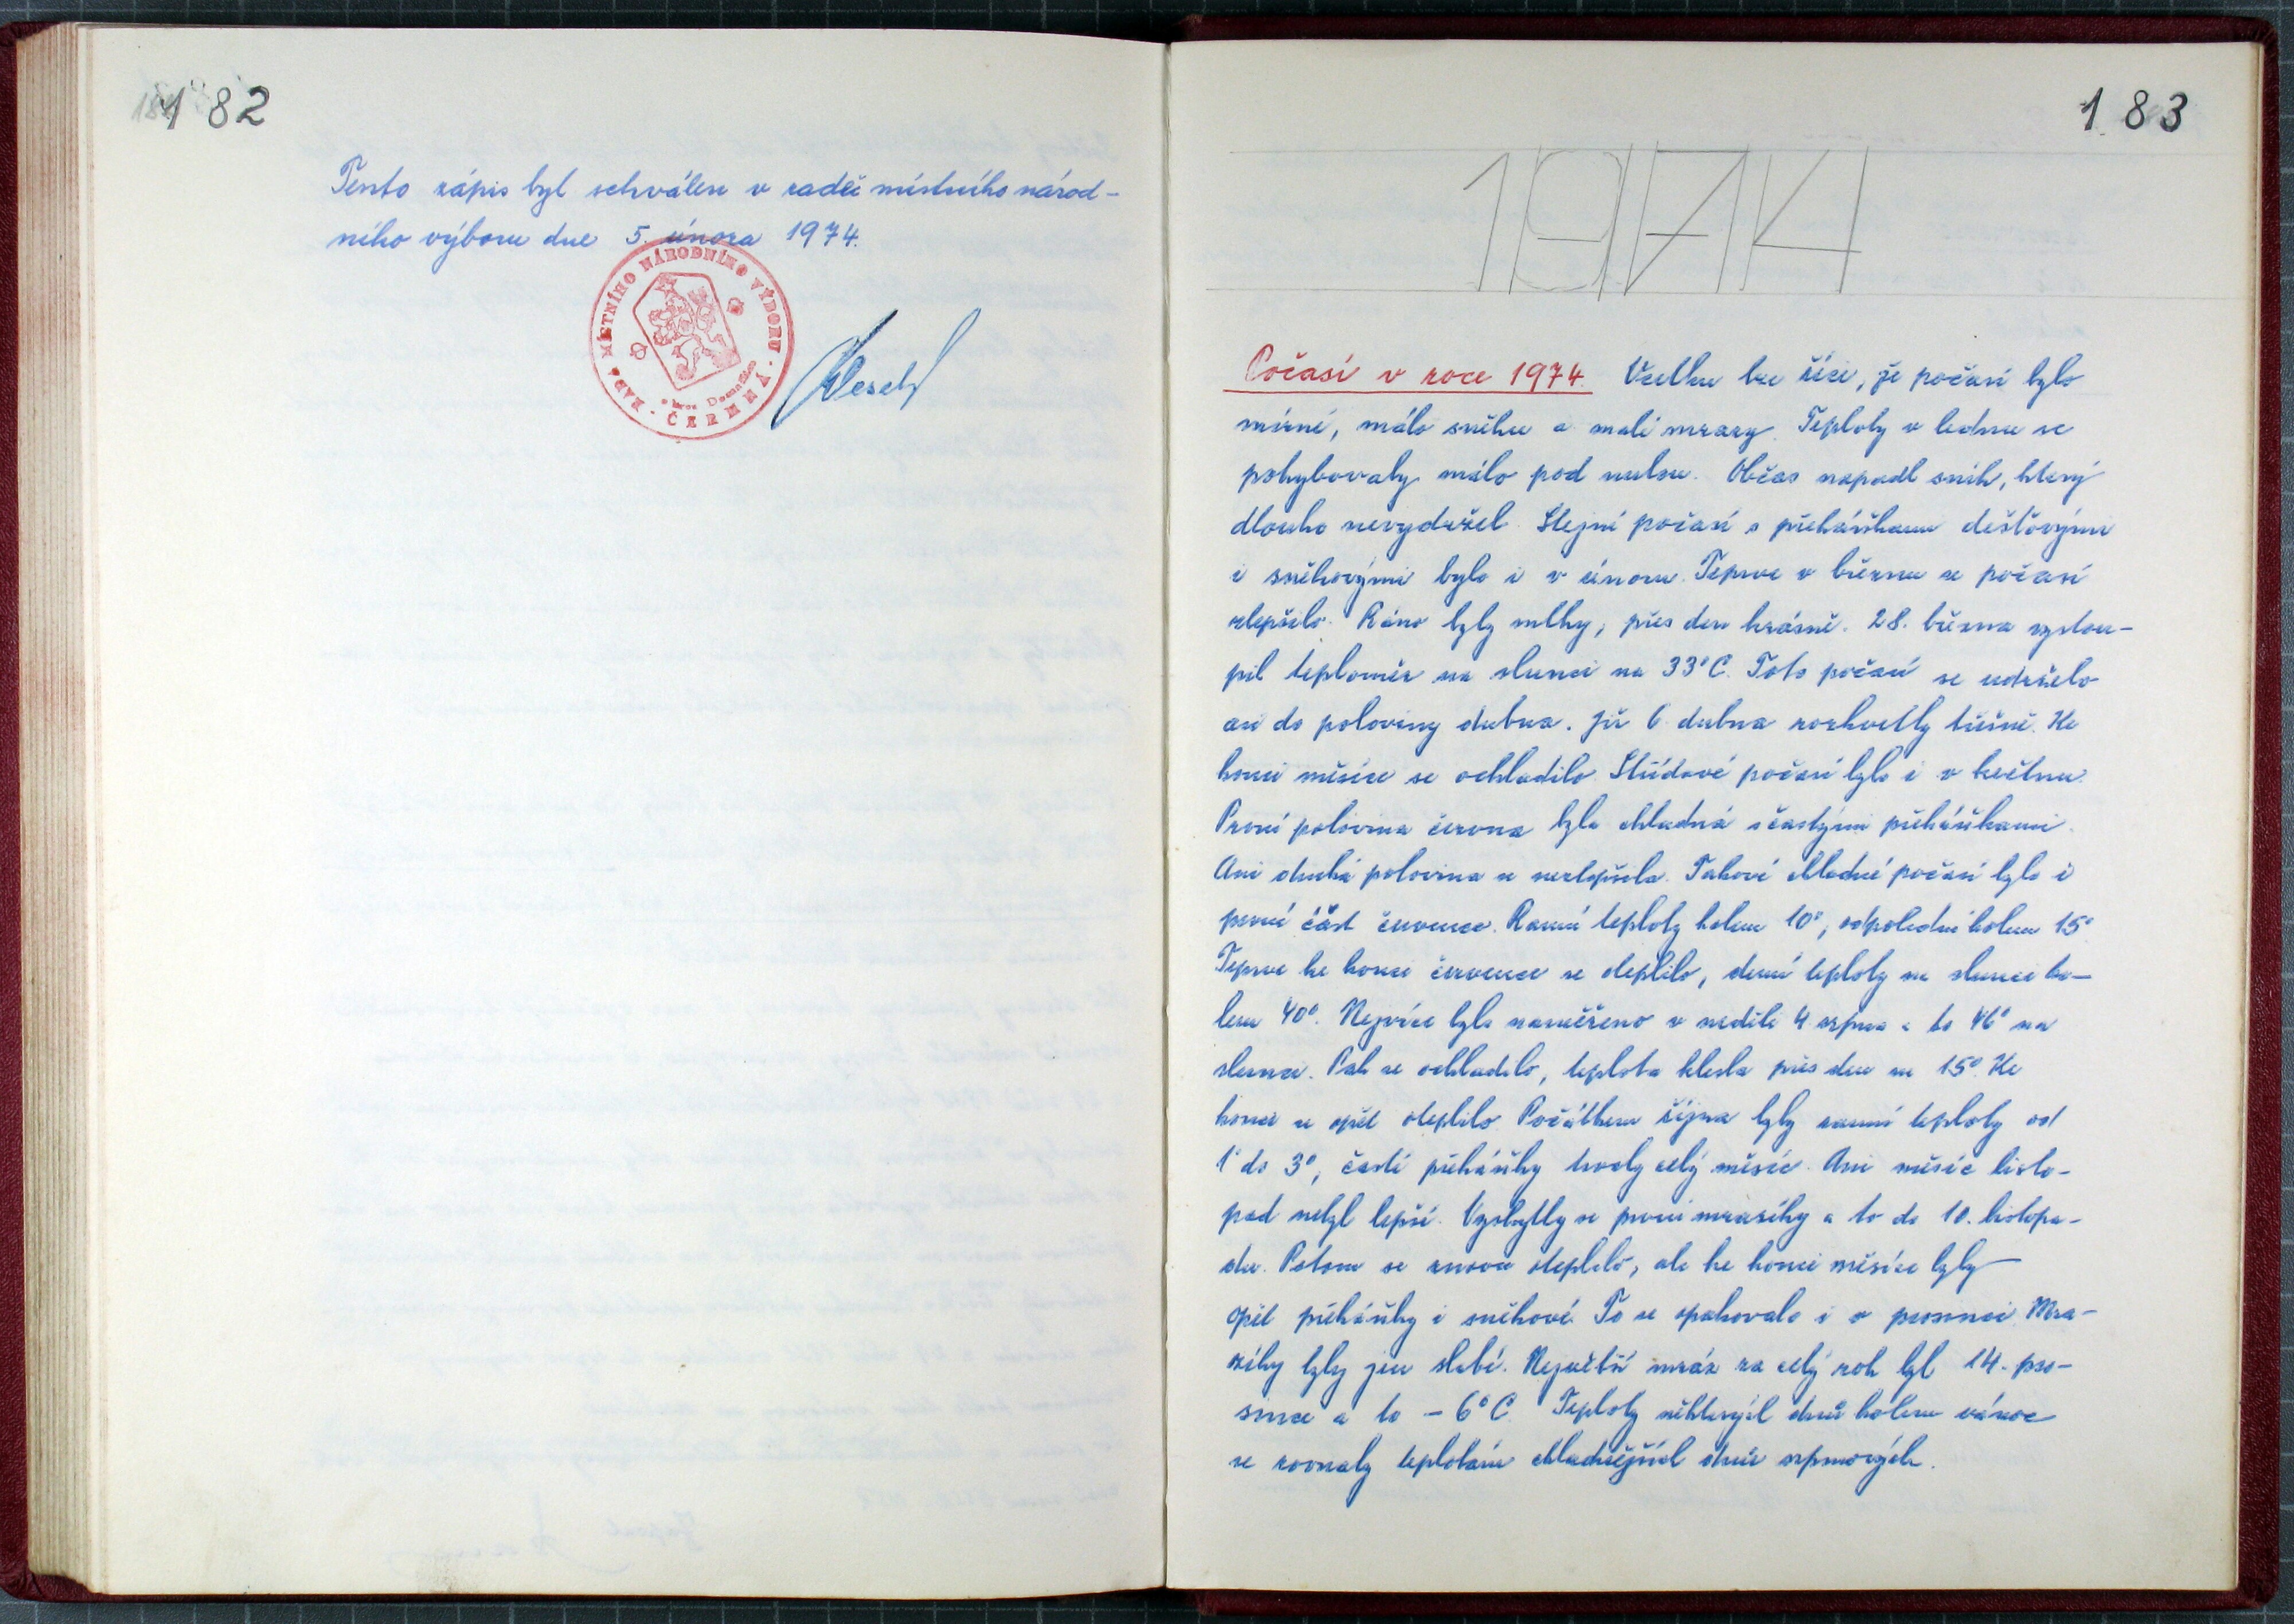 182
Tento zápis byl schválen v radě místního národ-
ního výboru dne 5. února 1974.
RADA MÍSTNÍHO NÁRODNÍHO VÝBORU
okres Domažlice
ČERMNÁ
183
1974
Počasí v roce 1974. Vcelku lze říci, že počasí bylo
mírné, málo sněhu a malé mrazy. Teploty v lednu se
pohybovaly málo pod nulou. Občas napadl sníh, který
dlouho nevydržel. Stejné počasí s přeháňkami dešťovými
i sněhovými bylo i v únoru. Teprve v březnu se počasí
zlepšilo. Ráno byly mlhy, přes den krásně. 28. března vystou-
pil teploměr na slunci na 33°C. Toto počasí se udrželo
asi do poloviny dubna. Již 6. dubna rozkvetly třešně. Ke
konci měsíce se ochladilo. Střídavé počasí bylo i v květnu.
První polovina června byla chladná s častými přeháňkami.
Ani druhá polovina se nezlepšila. Takové chladné počasí bylo i
první část července. Ranní teploty kolem 10°, odpolední kolem 15°
Teprve ke konci července se oteplilo, denní teploty na slunci ko-
lem 40°. Nejvíce bylo naměřeno v neděli 4. srpna a to 46° na
slunci. Pak se ochladilo, teplota klesla přes den na 15°. Ke
konci se opět oteplilo. Počátkem října byly ranní teploty od
1° do 3°, časté přeháňky trvaly celý měsíc. Ani měsíc listo-
pad nebyl lepší. Vyskytly se první mrazíky a to do 10. listopa-
du. Potom se znovu oteplilo, ale ke konci měsíce byly
opět přeháňky i sněhové. To se opakovalo i v prosinci. Mra-
zíky byly jen slabé. Největší mráz za celý rok byl 14. pro-
since a to - 6°C. Teploty některých dnů kolem vánoc
se rovnaly teplotám chladnějších dnů srpnových.